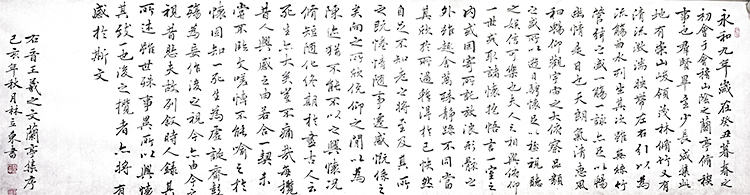 永和九年歲在癸丑暮春之
初會于會稽山陰之蘭亭修禊
事也群賢畢至少長咸集此
地有崇山峻領茂林修竹又有
清流激湍暎帶左右引以為
流觴曲水列坐其次雖無絲竹
管絃之盛一觴一詠亦足以暢
叙幽情是日也天朗氣清惠風
和暢仰觀宇宙之大俯察品類
之盛所以遊目騁懷足以極視聽
之娛信可樂也夫人之相與俯仰
一世或取諸懷抱悟言一室之
內或因寄所託放浪形骸之
外雖趣舍萬殊靜躁不同當
其欣於所遇暫得於己快然
自足不知老之將至及其所
之既惓情隨事遷感慨係之
矣向之所欣俛仰之閒以為
陳迹猶不能不以之興懷況
脩短隨化終期於盡古人云
死生亦大矣豈不痛哉每攬
昔人興感之由若合一契未
嘗不臨文嗟悼不能喻之於
懷固知一死生為虛誕齊彭
殤為妄作後之視今亦由今之
視昔悲夫故列叙時人錄其
所述雖世殊事異所以興懷
其致一也後之攬者亦將有
感於斯文
右晉王羲之文蘭亭集序
己亥年秋月林立東書